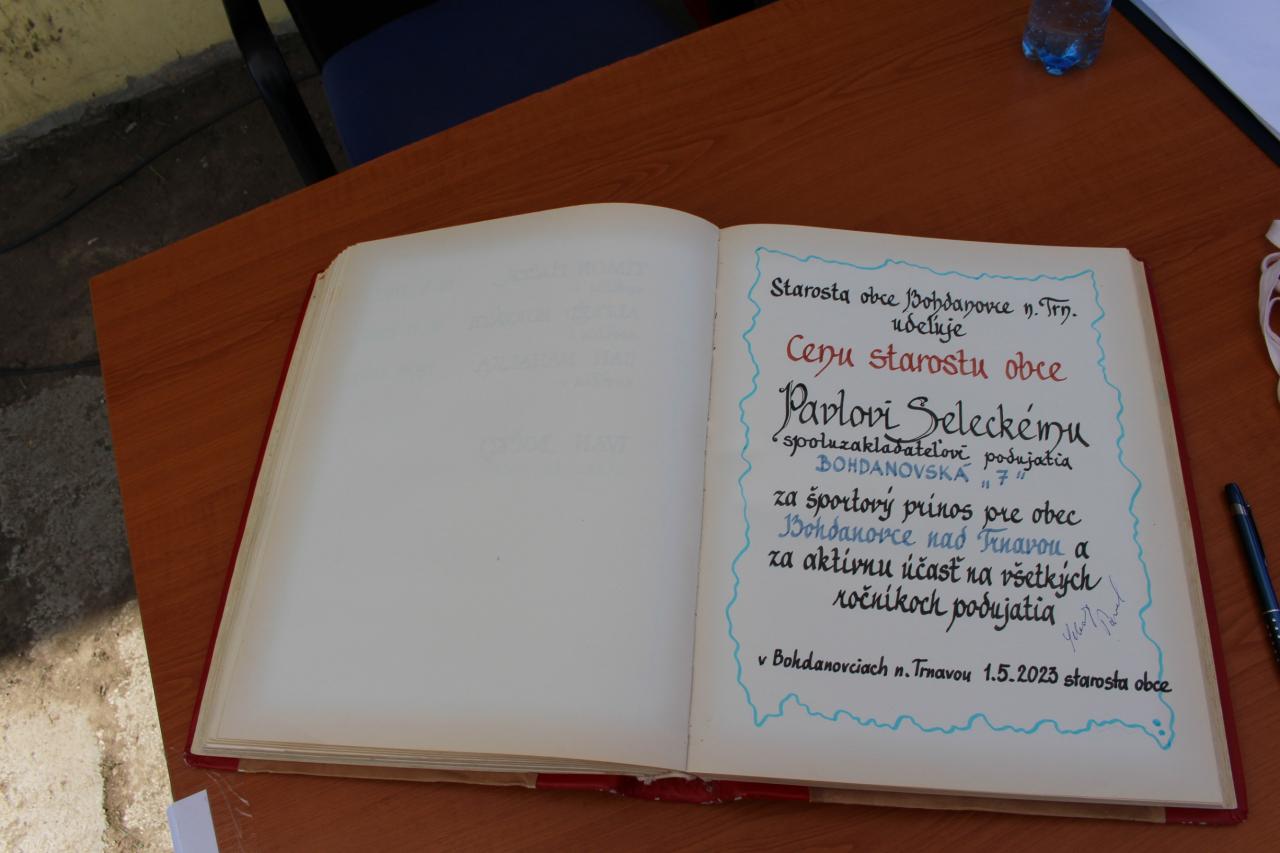 Starosta obce Bohdanovce n. Trn.
udeľuje
Cenu starostu obce
Pavlovi Seleckému
spoluzakladateľovi podujatia
BOHDANOVSKÁ „7“
za športový prínos pre obec
Bohdanovce nad Trnavou a
za aktívnu účasť na všetkých
ročníkoch podujatia
v Bohdanovciach n. Trnavou 1.5.2023 starosta obce